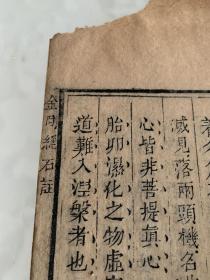 滅見落兩頭機名
心皆非菩提直心
胎卵濕化之物虛
道難入涅槃者也
金剛經石註